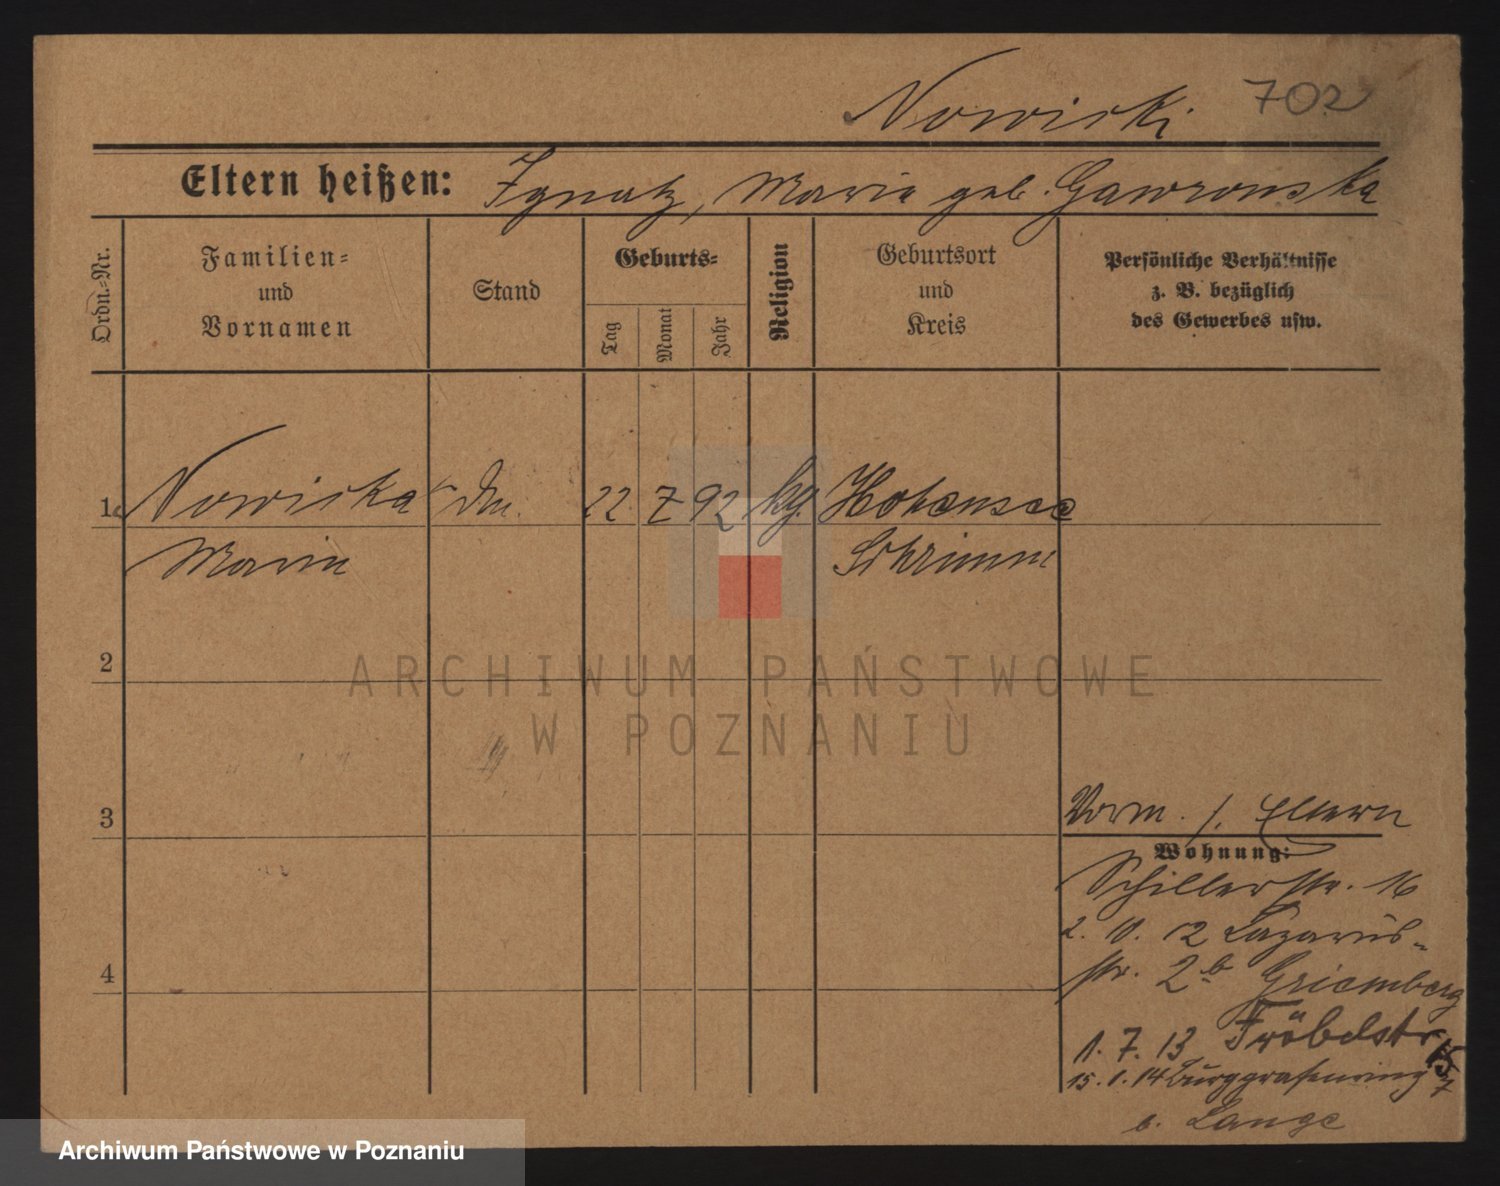 Nowicki 702
Eltern heißen: Ignatz, Maria geb. Gawronska
Ordn.-Nr.
Familien-
und
Vornamen
Stand
Geburts-
Tag
Monat
Jahr
Religion
Geburtsort
und
Kreis
Persönliche Verhältnisse
z. B. bezüglich
des Gewerbes usw.
1 Nowicka 22 7 92 kg. Hohensee
Maria Schrimm
2
3
4
Vorm. s. Eltern
Wohnung:
Schillerstr. 16
2. 10. 12 Lazarus-
str. 2b Griemberg
1. 7. 13 Fröbelstr
15. 1. 14 Burggrafenring 7
b. Lange
ARCHIWUM PAŃSTWOWE
W POZNANIU
Archiwum Państwowe w Poznaniu